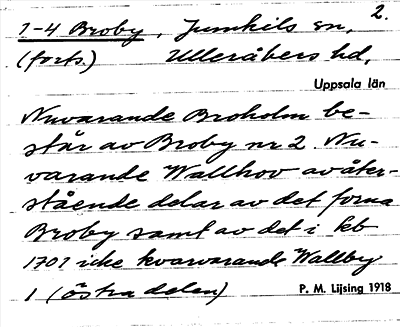 2.
1-4 Broby, Jumkils sn,
(forts.) Ulleråkers hd,
Uppsala län
Nuvarande Broholm be-
står av Broby nr 2. Nu-
varande Wallhov av åter-
stående delar av det forna
Broby samt av det i kb
1701 icke kvarvarande Wallby
1 (östra delen)
P. M. Lijsing 1918